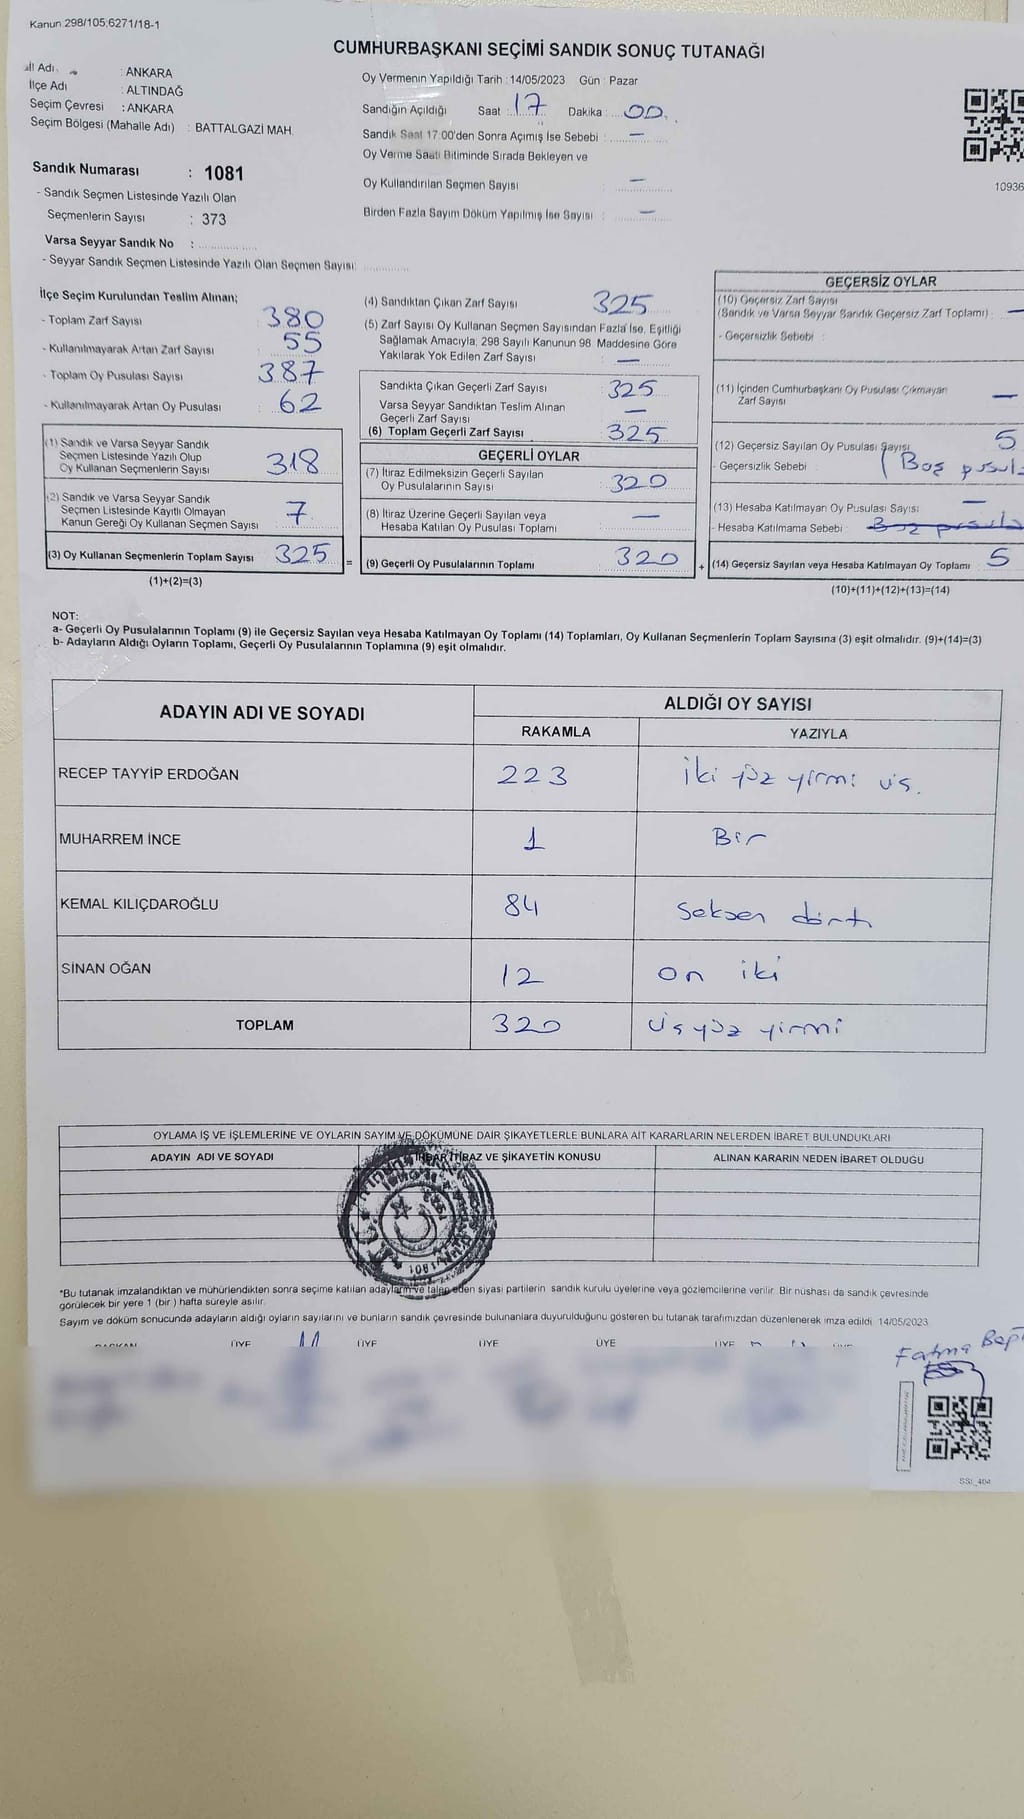 Kanun 298/105;6271/18-1
CUMHURBAŞKANI SEÇİMİ SANDIK SONUÇ TUTANAĞI
Adı : ANKARA
İlçe Adı : ALTINDAĞ
Seçim Çevresi : ANKARA
Seçim Bölgesi (Mahalle Adı) : BATTALGAZİ MAH.
Oy Vermenin Yapıldığı Tarih : 14/05/2023 Gün : Pazar
Sandığın Açıldığı Saat 17 Dakika : 00
Sandık Saat 17:00'den Sonra Açımış İse Sebebi : —
Oy Verme Saati Bitiminde Sırada Bekleyen ve
Oy Kullandırılan Seçmen Sayısı : —
Birden Fazla Sayım Döküm Yapılmış İse Sayısı : —
10936
Sandık Numarası : 1081
- Sandık Seçmen Listesinde Yazılı Olan
Seçmenlerin Sayısı : 373
Varsa Seyyar Sandık No :
- Seyyar Sandık Seçmen Listesinde Yazılı Olan Seçmen Sayısı:
İlçe Seçim Kurulundan Teslim Alınan;
- Toplam Zarf Sayısı : 380
- Kullanılmayarak Artan Zarf Sayısı : 55
- Toplam Oy Pusulası Sayısı : 387
- Kullanılmayarak Artan Oy Pusulası : 62
(1) Sandık ve Varsa Seyyar Sandık
Seçmen Listesinde Yazılı Olup
Oy Kullanan Seçmenlerin Sayısı : 318
(2) Sandık ve Varsa Seyyar Sandık
Seçmen Listesinde Kayıtlı Olmayan
Kanun Gereği Oy Kullanan Seçmen Sayısı : 7
(3) Oy Kullanan Seçmenlerin Toplam Sayısı : 325
(1)+(2)=(3)
(4) Sandıktan Çıkan Zarf Sayısı : 325
(5) Zarf Sayısı Oy Kullanan Seçmen Sayısından Fazla İse, Eşitliği
Sağlamak Amacıyla, 298 Sayılı Kanunun 98. Maddesine Göre
Yakılarak Yok Edilen Zarf Sayısı : —
Sandıkta Çıkan Geçerli Zarf Sayısı : 325
Varsa Seyyar Sandıktan Teslim Alınan
Geçerli Zarf Sayısı : —
(6) Toplam Geçerli Zarf Sayısı : 325
GEÇERLİ OYLAR
(7) İtiraz Edilmeksizin Geçerli Sayılan
Oy Pusulalarının Sayısı : 320
(8) İtiraz Üzerine Geçerli Sayılan veya
Hesaba Katılan Oy Pusulası Toplamı : —
= (9) Geçerli Oy Pusulalarının Toplamı : 320
GEÇERSİZ OYLAR
(10) Geçersiz Zarf Sayısı
(Sandık ve Varsa Seyyar Sandık Geçersiz Zarf Toplamı) : —
- Geçersizlik Sebebi :
(11) İçinden Cumhurbaşkanı Oy Pusulası Çıkmayan
Zarf Sayısı —
(12) Geçersiz Sayılan Oy Pusulası Sayısı 5
- Geçersizlik Sebebi : (Boş pusula
(13) Hesaba Katılmayan Oy Pusulası Sayısı : —
- Hesaba Katılmama Sebebi : Boş pusula
+ (14) Geçersiz Sayılan veya Hesaba Katılmayan Oy Toplamı : 5
(10)+(11)+(12)+(13)=(14)
NOT:
a- Geçerli Oy Pusulalarının Toplamı (9) ile Geçersiz Sayılan veya Hesaba Katılmayan Oy Toplamı (14) Toplamları, Oy Kullanan Seçmenlerin Toplam Sayısına (3) eşit olmalıdır. (9)+(14)=(3)
b- Adayların Aldığı Oyların Toplamı, Geçerli Oy Pusulalarının Toplamına (9) eşit olmalıdır.
ADAYIN ADI VE SOYADI ALDIĞI OY SAYISI
RAKAMLA YAZIYLA
RECEP TAYYİP ERDOĞAN 223 iki yüz yirmi üç.
MUHARREM İNCE 1 Bir
KEMAL KILIÇDAROĞLU 84 Seksen dört
SİNAN OĞAN 12 on iki
TOPLAM 320 üçyüz yirmi
OYLAMA İŞ VE İŞLEMLERİNE VE OYLARIN SAYIM VE DÖKÜMÜNE DAİR ŞİKAYETLERLE BUNLARA AİT KARARLARIN NELERDEN İBARET BULUNDUKLARI
ADAYIN ADI VE SOYADI İHBAR İTİRAZ VE ŞİKAYETİN KONUSU ALINAN KARARIN NEDEN İBARET OLDUĞU
1081
*Bu tutanak imzalandıktan ve mühürlendikten sonra seçime katılan adayların ve talep eden siyasi partilerin sandık kurulu üyelerine veya gözlemcilerine verilir. Bir nüshası da sandık çevresinde
görülecek bir yere 1 (bir ) hafta süreyle asılır.
Sayım ve döküm sonucunda adayların aldığı oyların sayılarını ve bunların sandık çevresinde bulunanlara duyurulduğunu gösteren bu tutanak tarafımızdan düzenlenerek imza edildi. 14/05/2023
BAŞKAN ÜYE ÜYE ÜYE ÜYE ÜYE ÜYE
Fatma
SSİ_404